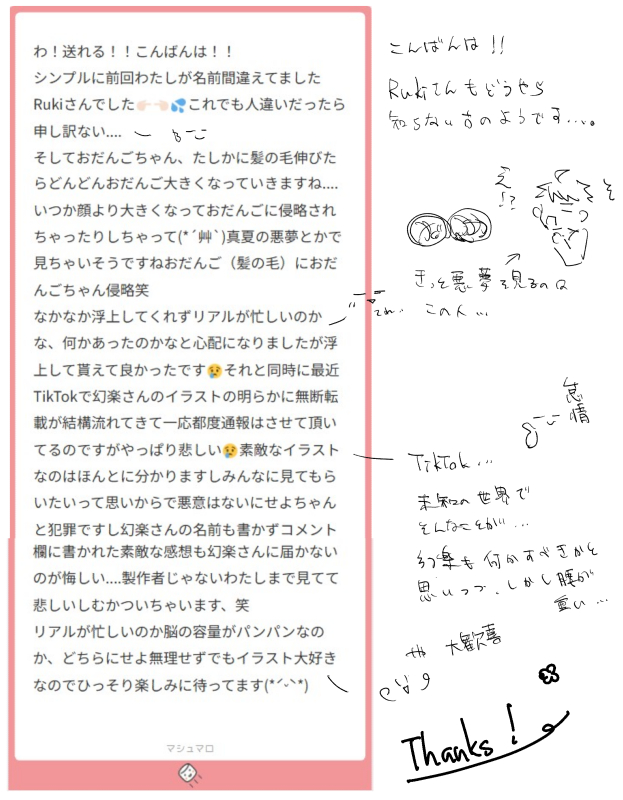 わ！送れる！！こんばんは！！
シンプルに前回わたしが名前間違えてました
Rukiさんでした👉🏻👈🏻💦これでも人違いだったら
申し訳ない....
そしておだんごちゃん、たしかに髪の毛伸びた
らどんどんおだんご大きくなっていきますね....
いつか顔より大きくなっておだんごに侵略され
ちゃったりしちゃって(*´艸`)真夏の悪夢とかで
見ちゃいそうですねおだんご（髪の毛）におだ
んごちゃん侵略笑
なかなか浮上してくれずリアルが忙しいのか
な、何かあったのかなと心配になりましたが浮
上して貰えて良かったです😢それと同時に最近
TikTokで幻楽さんのイラストの明らかに無断転
載が結構流れてきて一応都度通報はさせて頂い
てるのですがやっぱり悲しい😢素敵なイラスト
なのはほんとに分かりますしみんなに見てもら
いたいって思いからで悪意はないにせよちゃん
と犯罪ですし幻楽さんの名前も書かずコメント
欄に書かれた素敵な感想も幻楽さんに届かない
のが悔しい....製作者じゃないわたしまで見てて
悲しいしむかついちゃいます、笑
リアルが忙しいのか脳の容量がパンパンなの
か、どちらにせよ無理せずでもイラスト大好き
なのでひっそり楽しみに待ってます(*ˊᵕˋ*)
マシュマロ
こんばんは!!
Rukiさんもどうやら
知らない方のようです....。
え
!?
きっと悪夢を見るのは
この人...
怠惰
TikTok...
未知の世界で
そんなことが...
幻楽も何かすべきかと
思いつつ、しかし腰が
重い...
大歓喜
Thanks!